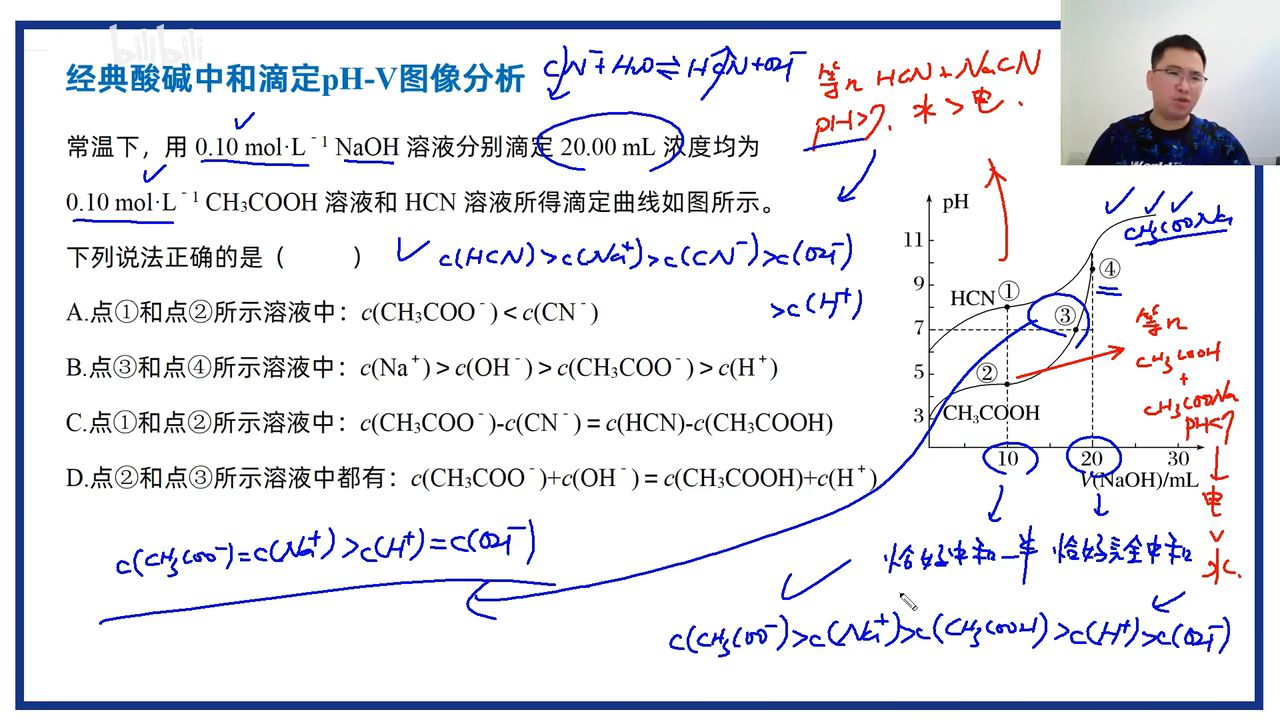 bilibili
经典酸碱中和滴定pH-V图像分析
CN⁻+H₂O⇌HCN+OH⁻
等n HCN+NaCN
pH>7. 水>电.
常温下，用 0.10 mol·L⁻¹ NaOH 溶液分别滴定 20.00 mL 浓度均为
0.10 mol·L⁻¹ CH₃COOH 溶液和 HCN 溶液所得滴定曲线如图所示。
下列说法正确的是（ ）
c(HCN)>c(Na⁺)>c(CN⁻)>c(OH⁻)
>c(H⁺)
A.点①和点②所示溶液中：c(CH₃COO⁻)＜c(CN⁻)
B.点③和点④所示溶液中：c(Na⁺)＞c(OH⁻)＞c(CH₃COO⁻)＞c(H⁺)
C.点①和点②所示溶液中：c(CH₃COO⁻)-c(CN⁻)＝c(HCN)-c(CH₃COOH)
D.点②和点③所示溶液中都有：c(CH₃COO⁻)+c(OH⁻)＝c(CH₃COOH)+c(H⁺)
pH
11
9
7
5
3
HCN
①
②
③
④
CH₃COOH
10
20
30
V(NaOH)/mL
CH₃COONa
等n
CH₃COOH
+
CH₃COONa
pH<7
电
>
水.
恰好中和一半
恰好完全中和
c(CH₃COO⁻)=c(Na⁺)>c(H⁺)=c(OH⁻)
c(CH₃COO⁻)>c(Na⁺)>c(CH₃COOH)>c(H⁺)>c(OH⁻)